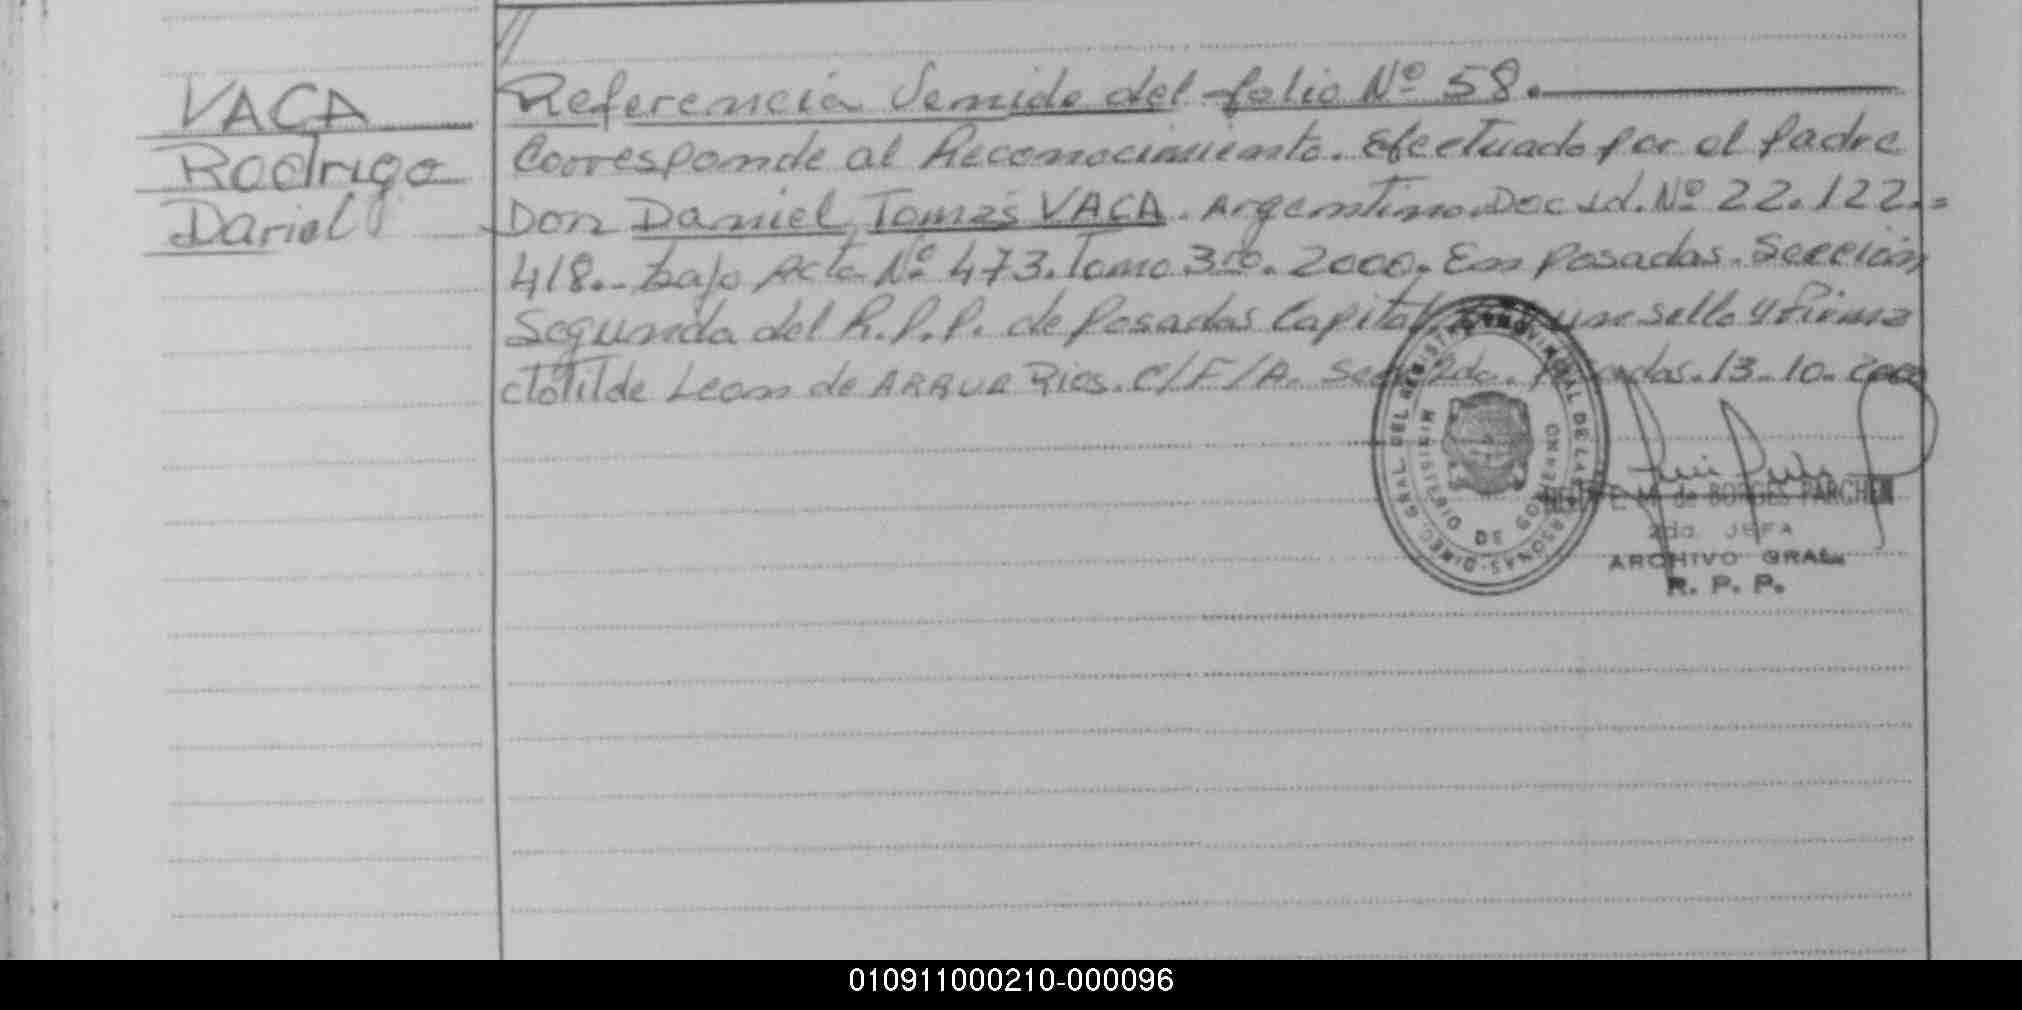 VACA
Rodrigo
Dariel
Referencia Venida del folio Nº 58.
Corresponde al Reconocimiento. Efectuado por el Padre
Don Daniel Tomás VACA. Argentino. Doc Id. Nº 22.122.=
418.- bajo Acta Nº 473. Tomo 3ro. 2000. En Posadas. Sección
Segunda del R.P.P. de Posadas Capital. une sello y Firma
Clotilde Leon de ARRUA Rios. C/F/A. Sec. 2da. Posadas. 13-10-2000
DIREC. GRAL. DEL REGISTRO PROVINCIAL DE LAS PERSONAS
MINISTERIO DE GOBIERNO
de BORGES PARCHEN
2da. JEFA
ARCHIVO GRAL.
R. P. P.
010911000210-000096